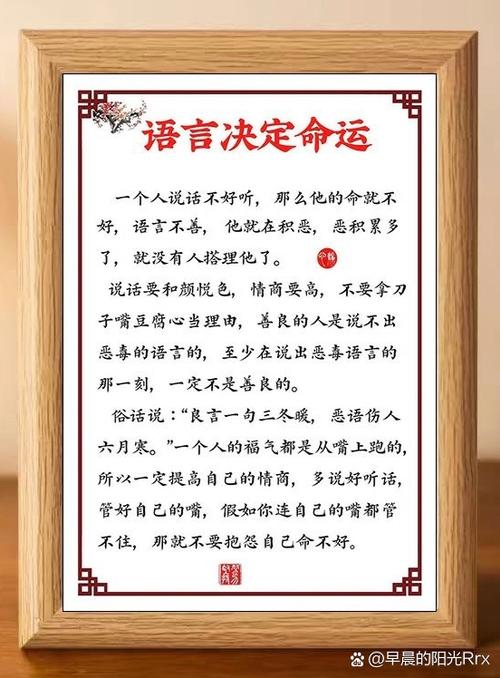 语言决定命运
一个人说话不好听, 那么他的命就不
好, 语言不善, 他就在积恶, 恶积累多
了, 就没有人搭理他了。
说话要和颜悦色, 情商要高, 不要拿刀
子嘴豆腐心当理由, 善良的人是说不出
恶毒的语言的, 至少在说出恶毒语言的
那一刻, 一定不是善良的。
俗话说:“良言一句三冬暖, 恶语伤人
六月寒。”一个人的福气都是从嘴上跑的,
所以一定提高自己的情商, 多说好听话,
管好自己的嘴, 假如你连自己的嘴都管
不住, 那就不要抱怨自己命不好。
@早晨的阳光Rrx